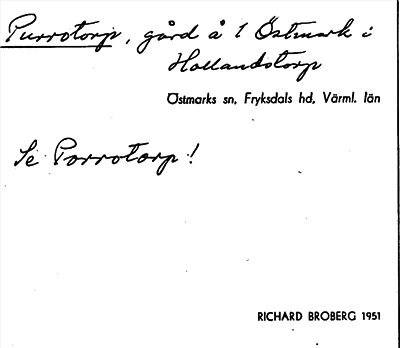 Purrotorp, gård å 1 Östmark i
Hollandstorp
Östmarks sn, Fryksdals hd, Värml. län
Se Porrotorp!
RICHARD BROBERG 1951